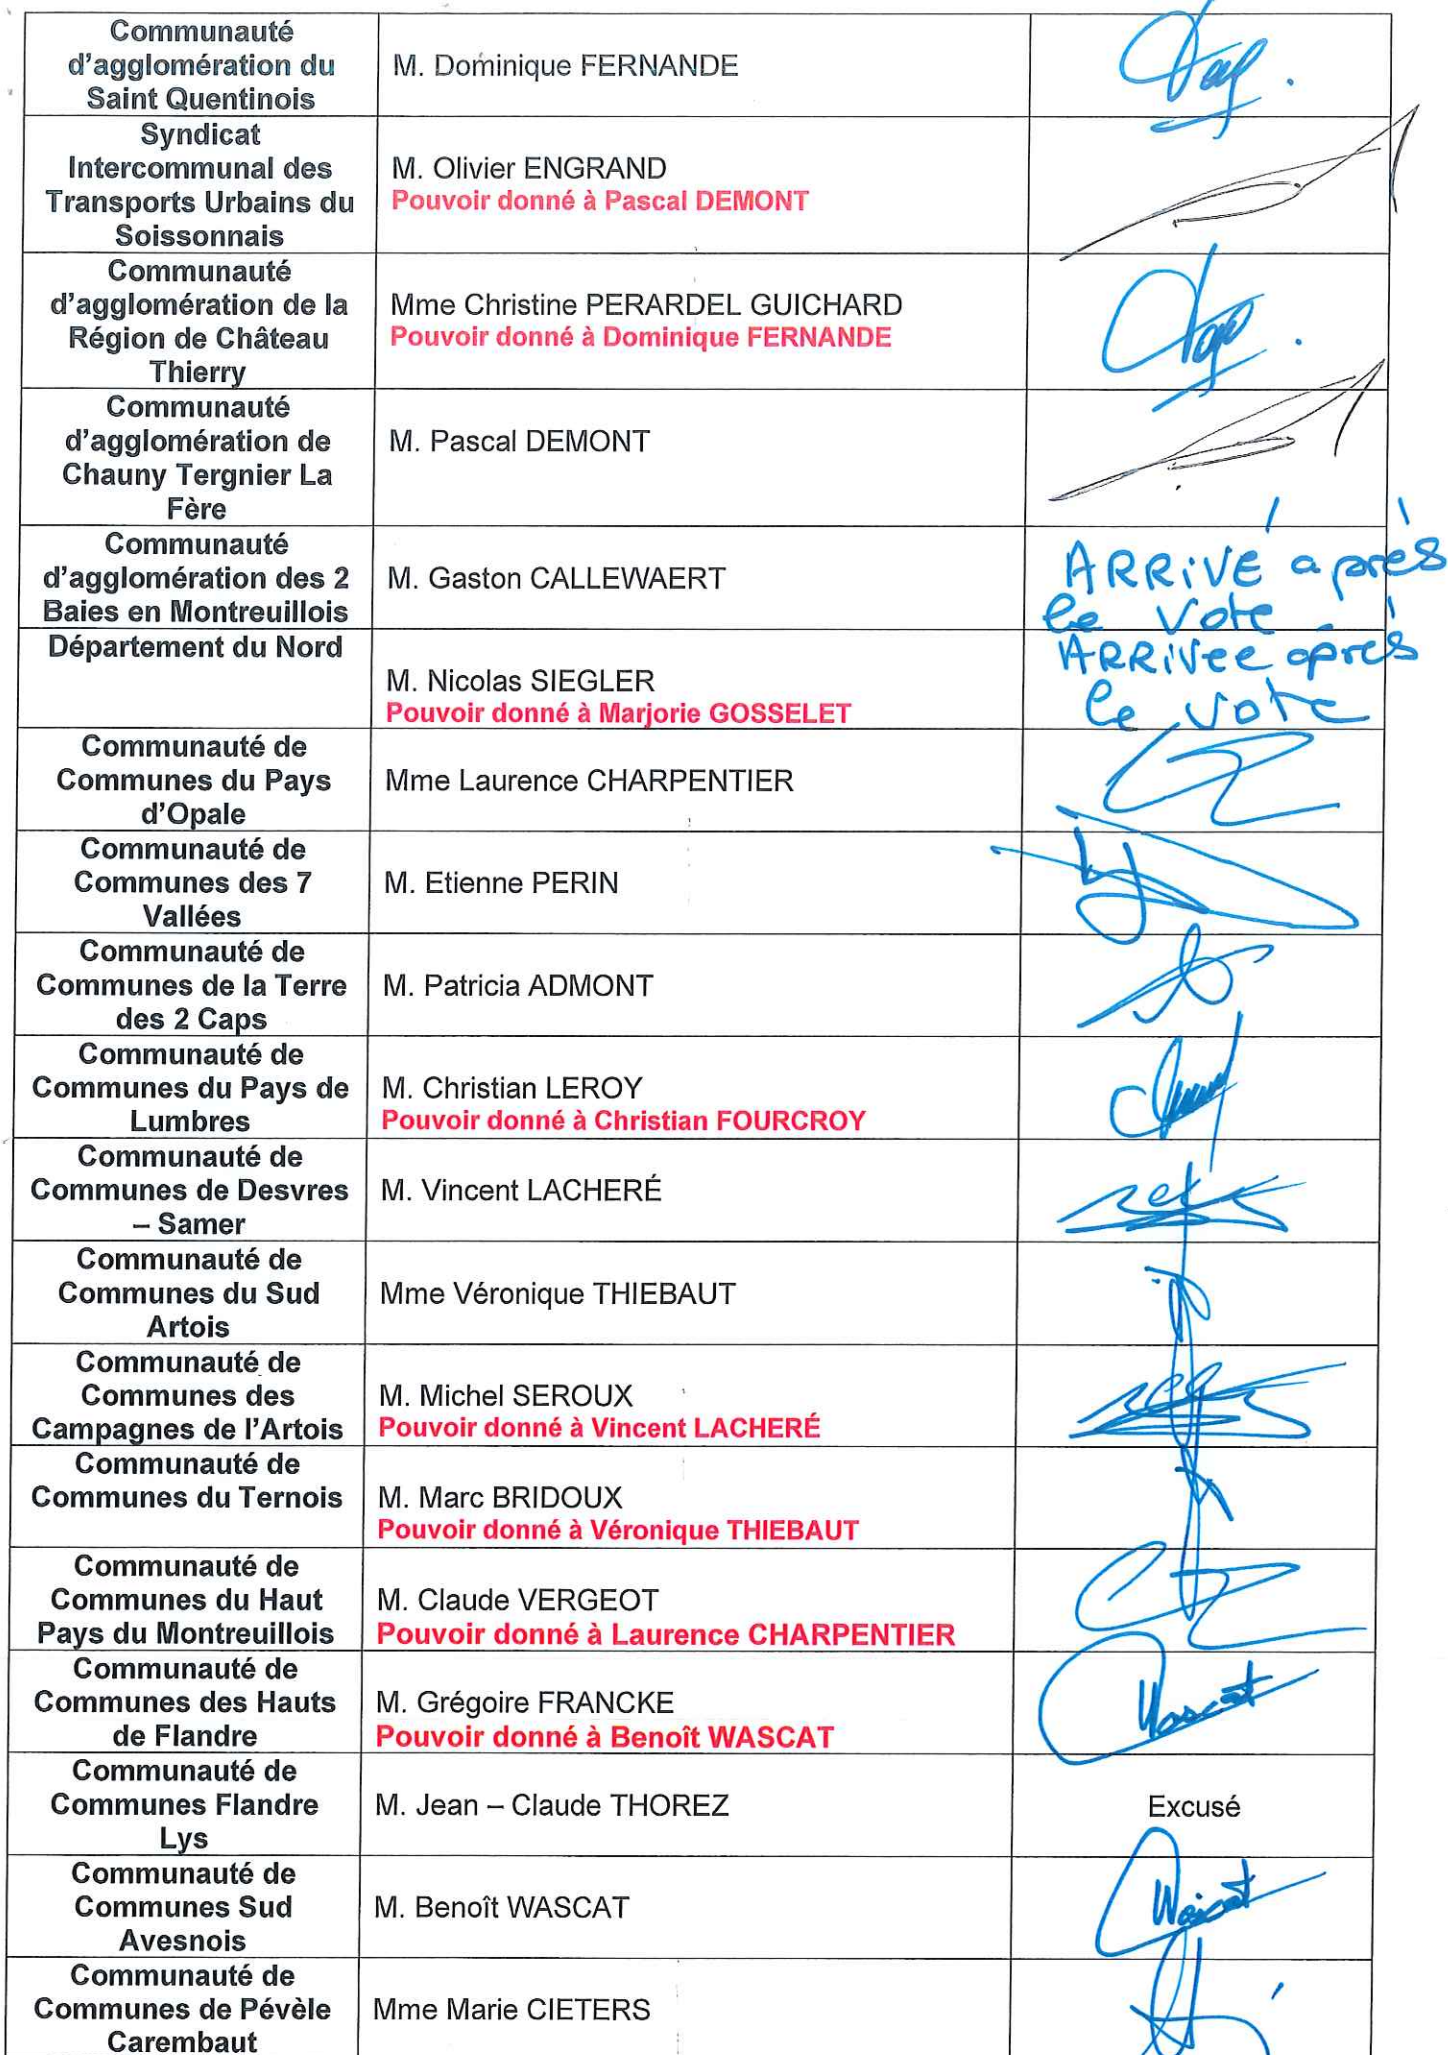 Communauté
d'agglomération du
Saint Quentinois
M. Dominique FERNANDE
Syndicat
Intercommunal des
Transports Urbains du
Soissonnais
M. Olivier ENGRAND
Pouvoir donné à Pascal DEMONT
Communauté
d'agglomération de la
Région de Château
Thierry
Mme Christine PERARDEL GUICHARD
Pouvoir donné à Dominique FERNANDE
Communauté
d'agglomération de
Chauny Tergnier La
Fère
M. Pascal DEMONT
Communauté
d'agglomération des 2
Baies en Montreuillois
M. Gaston CALLEWAERT
ARRIVÉ après
le vote
Département du Nord
M. Nicolas SIEGLER
Pouvoir donné à Marjorie GOSSELET
ARRIVEE après
le vote
Communauté de
Communes du Pays
d'Opale
Mme Laurence CHARPENTIER
Communauté de
Communes des 7
Vallées
M. Etienne PERIN
Communauté de
Communes de la Terre
des 2 Caps
M. Patricia ADMONT
Communauté de
Communes du Pays de
Lumbres
M. Christian LEROY
Pouvoir donné à Christian FOURCROY
Communauté de
Communes de Desvres
– Samer
M. Vincent LACHERÉ
Communauté de
Communes du Sud
Artois
Mme Véronique THIEBAUT
Communauté de
Communes des
Campagnes de l'Artois
M. Michel SEROUX
Pouvoir donné à Vincent LACHERÉ
Communauté de
Communes du Ternois
M. Marc BRIDOUX
Pouvoir donné à Véronique THIEBAUT
Communauté de
Communes du Haut
Pays du Montreuillois
M. Claude VERGEOT
Pouvoir donné à Laurence CHARPENTIER
Communauté de
Communes des Hauts
de Flandre
M. Grégoire FRANCKE
Pouvoir donné à Benoît WASCAT
Wascat
Communauté de
Communes Flandre
Lys
M. Jean – Claude THOREZ
Excusé
Communauté de
Communes Sud
Avesnois
M. Benoît WASCAT
Wascat
Communauté de
Communes de Pévèle
Carembaut
Mme Marie CIETERS